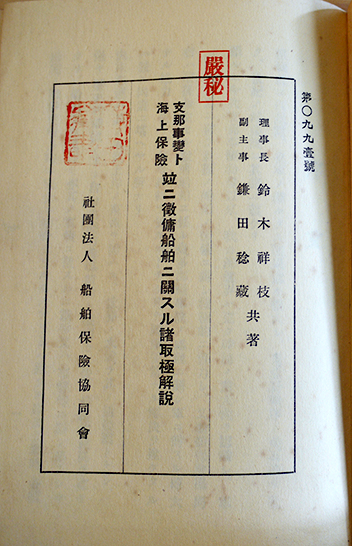 第〇九九壹號
嚴秘
理事長 鈴木祥枝
副主事 鎌田稔藏
共著
支那事變ト
海上保險
竝ニ徵傭船舶ニ關スル諸取極解說
社團法人 船舶保險協同會